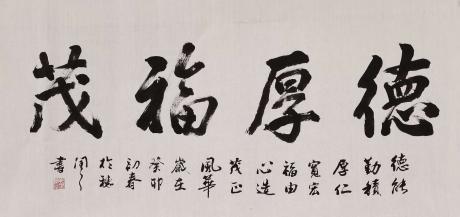 德厚福茂
德能
勤積
厚仁
寬宏
福由
心造
茂正
風華
歲在
癸卯
初春
於穗
書